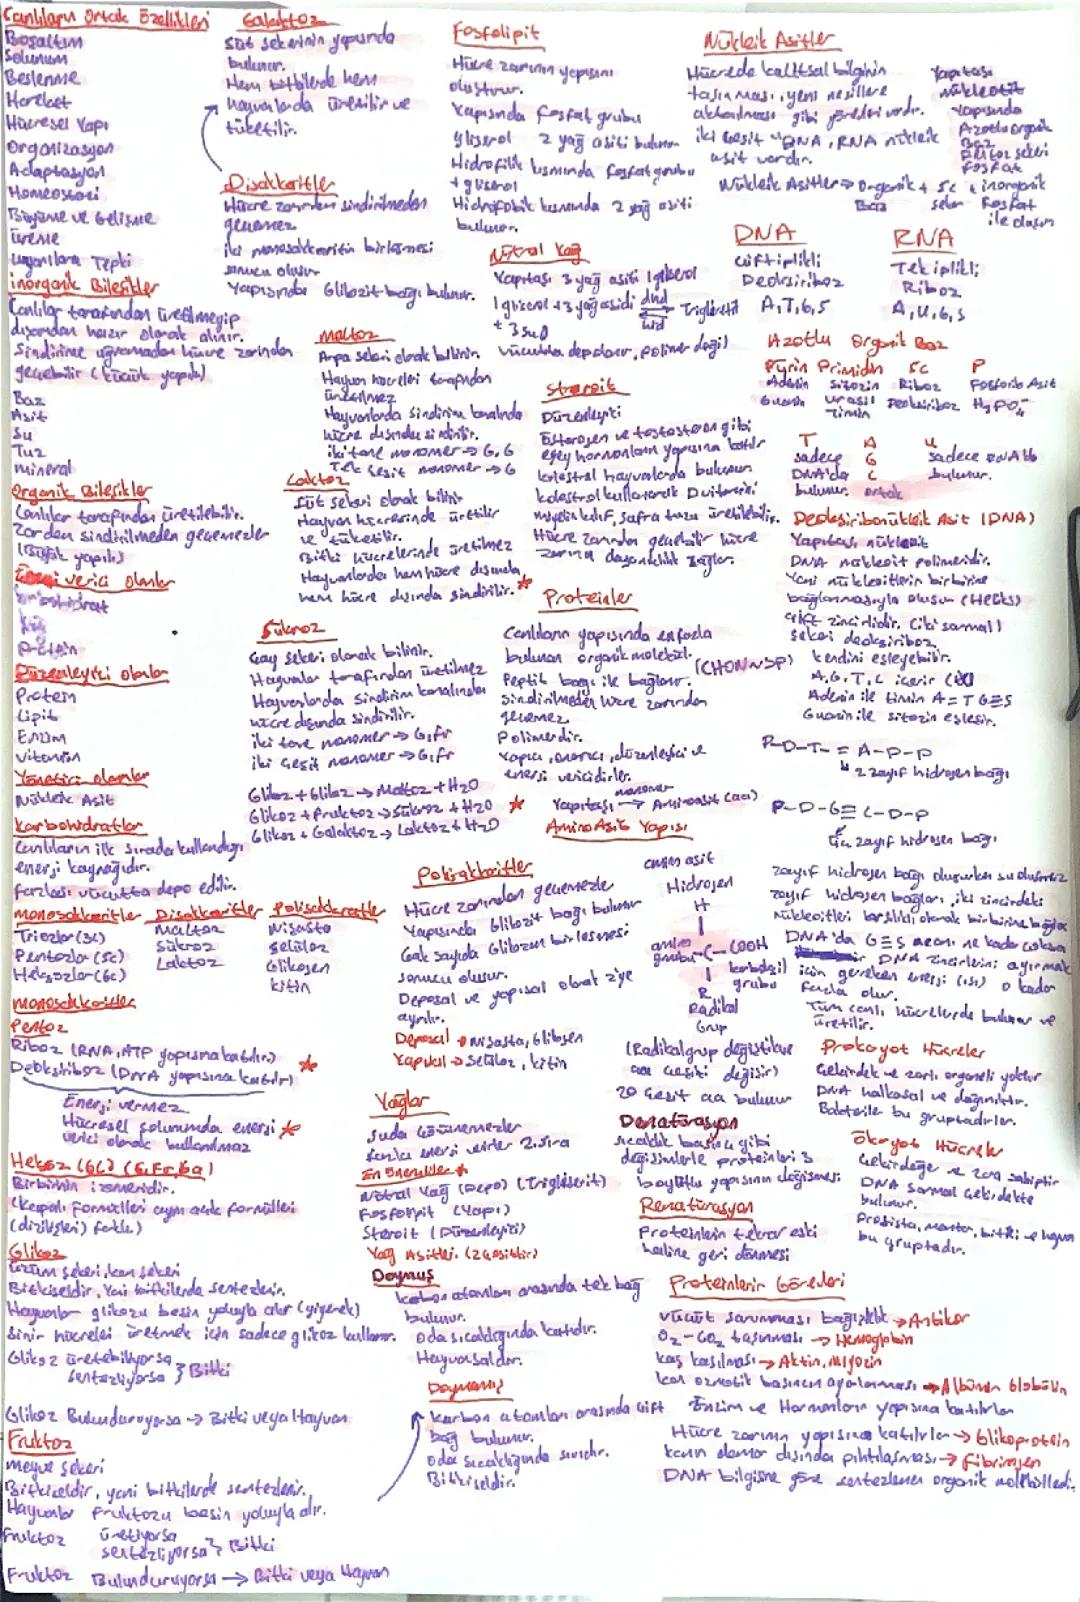 Canlıların Ortak Özellikleri
Boşaltım
Solunum
Beslenme
Hareket
Hücresel Yapı
Organizasyon
Adaptasyon
Homeostazi
Büyüme ve Gelişme
Üreme
Uyarılara Tepki
İnorganik Bileşikler
Canlılar tarafından üretilmeyip
dışarıdan hazır olarak alınır.
Sindirime uğramadan hücre zarından
geçebilir (küçük yapılı)
Baz
Asit
Su
Tuz
mineral
Organik Bileşikler
Canlılar tarafından üretilebilir.
Zardan sindirilmeden geçemezler
(Büyük yapılı)
Enerji verici olanlar
karbohidrat
Yağ
protein
Düzenleyici olanlar
Protein
Lipit
Enzim
vitamin
Yönetici olanlar
Nükleik Asit
Karbohidratlar
Canlıların ilk sırada kullandığı
enerji kaynağıdır.
fazlası vücutta depo edilir.
monosakkaritler Disakkaritler Polisakkaritler
Triozlar (3c) Maltoz Nişasta
Pentozlar (5c) Sükroz Selüloz
Heksozlar (6c) Laktoz Glikojen
kitin
monosakkaritler
Pentoz
Riboz (RNA, ATP yapısına katılır)
Deoksiriboz (DNA yapısına katılır)
Enerji vermez
Hücresel solunumda enerji
verici olarak kullanılmaz
Heksoz (6C) (G, Fr, Ga)
Birbirinin izomeridir.
(Kapalı formülleri aynı açık formülleri
(dizilişleri) farklı)
Glikoz
üzüm şekeri, kan şekeri
Bitkiseldir, Yani bitkilerde sentezlenir.
Hayvanlar glikozu besin yoluyla alır (yiyerek)
Sinir hücreleri üretmek için sadece glikoz kullanır.
Glikoz üretebiliyorsa
sentezliyorsa } Bitki
Glikoz Bulunduruyorsa → Bitki veya Hayvan
Fruktoz
meyve şekeri
Bitkiseldir, yani bitkilerde sentezlenir.
Hayvanlar fruktozu besin yoluyla alır.
Fruktoz üretiyorsa
sentezliyorsa } Bitki
Fruktoz Bulunduruyorsa → Bitki veya Hayvan
Galaktoz
Süt şekerinin yapısında
bulunur.
Hem bitkilerde hem
hayvanlarda üretilir ve
tüketilir.
Disakkaritler
Hücre zarından sindirilmeden
geçemez
iki monosakkaritin birleşmesi
sonucu oluşur
Yapısında Glikozit bağı bulunur.
Maltoz
Arpa şekeri olarak bilinir.
Hayvan hücreleri tarafından
üretilmez
Hayvanlarda sindirim kanalında
hücre dışında sindirilir.
iki tane monomer → G, G
Tek çeşit monomer → G
Laktoz
Süt şekeri olarak bilinir
Hayvan hücresinde üretilir
ve tüketilir.
Bitki hücrelerinde üretilmez
Hayvanlarda hem hücre dışında
hem hücre dışında sindirilir.
Sükroz
Çay şekeri olarak bilinir.
Hayvanlar tarafından üretilmez
Hayvanlarda sindirim kanalında
hücre dışında sindirilir.
iki tane monomer → G, Fr
iki çeşit monomer → G, Fr
Glikoz + Glikoz → Maltoz + H2O
Glikoz + fruktoz → Sükroz + H2O
Glikoz + Galaktoz → Laktoz + H2O
Polisakkaritler
Hücre zarından geçemezler
Yapısında Glikozit bağı bulunur
Çok sayıda Glikozun birleşmesi
sonucu oluşur.
Deposal ve yapısal olarak 2'ye
ayrılır.
Deposal → Nişasta, Glikojen
Yapısal → Selüloz, kitin
Yağlar
Suda çözünemezler
enerji verirler 2. sıra
En Önemliler
Nötral Yağ (Depo) (Trigliserit)
Fosfolipit (Yapı)
Steroit (Düzenleyici)
Yağ Asitleri (2 çeşittir)
Doymuş
karbon atomları arasında tek bağ
bulunur.
Oda sıcaklığında katıdır.
Hayvansaldır.
Doymamış
karbon atomları arasında çift
bağ bulunur.
Oda sıcaklığında sıvıdır.
Bitkiseldir.
Fosfolipit
Hücre zarının yapısını
oluşturur.
Yapısında fosfat grubu
gliserol 2 yağ asiti bulunur
Hidrofilik kısmında fosfat grubu
+ gliserol
Hidrofobik kısmında 2 yağ asiti
bulunur.
Nötral Yağ
Yapıtaşı 3 yağ asiti 1 gliserol
1 gliserol + 3 yağ asidi ⇌ Trigliserit
+ 3 su
Vücutta depolanır, polimer değil
Steroit
Düzenleyici
Östrojen ve testosteron gibi
eşey hormonların yapısına katılır
kolestrol hayvanlarda bulunur
kolestrol kullanarak D vitamini
miyelin kılıf, safra tuzu üretilebilir.
Hücre zarından geçebilir hücre
zarına dayanıklılık sağlar.
Proteinler
Canlıların yapısında en fazla
bulunan organik molekül. (CHONNSP)
Peptit bağı ile bağlanır.
Sindirilmeden hücre zarından
geçemez
Polimerdir.
Yapıcı, onarıcı, düzenleyici ve
enerji vericidirler.
monomer
Yapıtaşı → Aminoasit (aa)
Amino Asit Yapısı
asit
Hidrojen
H
amino grubu - C - COOH
karboksil grubu
R
Radikal
Grup
(Radikal grup değiştikçe
aa çeşidi değişir)
20 çeşit aa bulunur
Denatürasyon
sıcaklık basınç gibi
değişimlerle proteinleri 3
boyutlu yapısının değişmesi
Renatürasyon
Proteinlerin tekrar eski
haline geri dönmesi
Proteinlerin Görevleri
vücut savunması bağışıklık → Antikor
O2-CO2 taşınması → Hemoglobin
kas kasılması → Aktin, Miyozin
kan ozmotik basıncın ayarlanması → Albümin Globülin
Enzim ve Hormonların yapısına katılırlar
Hücre zarının yapısına katılırlar → Glikoprotein
kanın damar dışında pıhtılaşması → fibrinojen
DNA bilgisine göre sentezlenen organik moleküllerdir.
Nükleik Asitler
Hücrede kalıtsal bilginin
taşınması, yeni nesillere
aktarılması gibi görevleri vardır.
iki çeşit "DNA, RNA nükleik
asit vardır.
Yapıtaşı
nükleotit
Yapısında
Azotlu organik
Baz
pentoz şekeri
fosfat
Nükleik Asitler → Organik Baz + 5c şeker + inorganik fosfat
ile oluşur
DNA
Çift iplikli
Deoksiriboz
A, T, G, S
RNA
Tek iplikli
Riboz
A, U, G, S
Azotlu Organik Baz
Pürin Primidin 5c P
Adenin Sitozin Riboz Fosforik Asit
Guanin Urasil Deoksiriboz H3PO4-
Timin
T A U
sadece G sadece RNA'da
DNA'da C bulunur.
bulunur. ortak
Deoksiribonükleik Asit (DNA)
Yapıtaşı nükleotit
DNA nükleotit polimeridir.
Yani nükleotitlerin birbirine
bağlanmasıyla oluşur (Heliks)
çift zincirlidir. (iki sarmal)
şekeri deoksiriboz
kendini eşleyebilir.
A, G, T, C içerir
Adenin ile timin A=T G≡S
Guanin ile sitozin eşleşir.
P-D-T = A-D-P
2 zayıf hidrojen bağı
P-D-G≡C-D-P
Üç zayıf hidrojen bağı
zayıf hidrojen bağı oluşurken su oluşmaz
zayıf hidrojen bağları, iki zincirdeki
nükleotitleri karşılıklı olarak birbirine bağlar
DNA'da G≡S oranı ne kadar çoksa
DNA zincirlerini ayırmak
için gereken enerji (ısı) o kadar
fazla olur.
Tüm canlı hücrelerde bulunur ve
üretilir.
Prokaryot Hücreler
Çekirdek ve zarlı organeli yoktur
DNA halkasal ve dağınıktır.
Bakteriler bu gruptadırlar.
Ökaryot Hücreler
Çekirdeğe ve zara sahiptir
DNA sarmal çekirdekte
bulunur.
Protista, mantar, bitki ve hayvan
bu gruptadır.